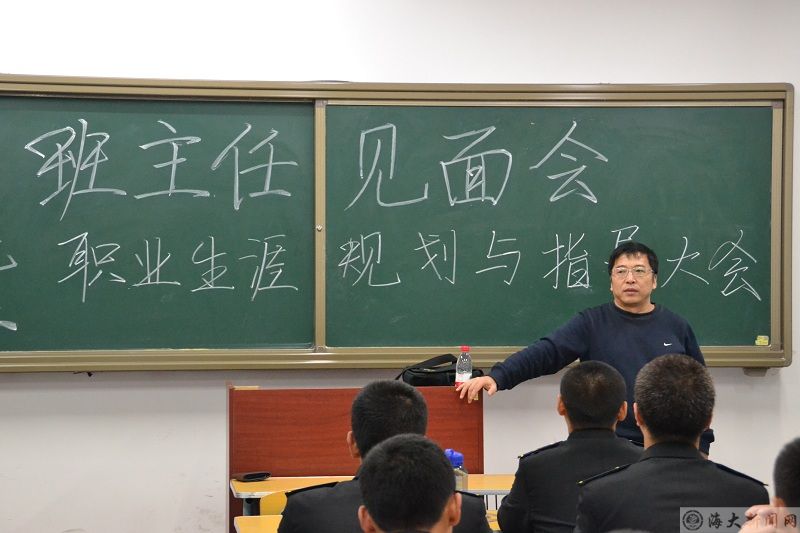 班主任 见面会
职业生涯 规划与指导大会
海大新闻网